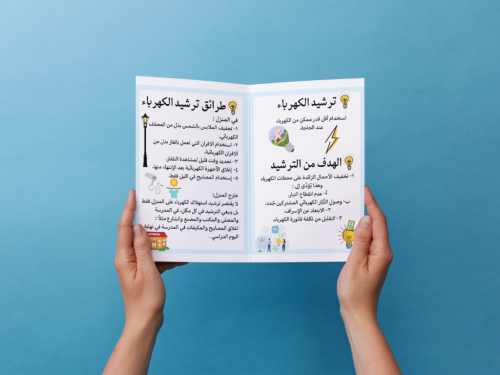 ترشيد الكهرباء
استخدام أقل قدر ممكن من الكهرباء
عند الحاجة.
الهدف من الترشيد
١- تخفيف الأحمال الزائدة على محطات الكهرباء
وهذا يؤدي إلى :
أ- عدم انقطاع التيار.
ب- وصول التيار الكهربائي المشتركين جُدد.
٢- الابتعاد عن الإسراف.
٣- التقليل من تكلفة فاتورة الكهرباء.
طرائق ترشيد الكهرباء
في المنزل :
١- تجفيف الملابس بالشمس بدل من المجفف
الكهربائي.
٢- استخدام الافران التي تعمل بالغاز بدل من
الافران الكهربائية.
٣- تحديد وقت قليل لمشاهدة التلفاز.
٤- إغلاق الأجهزة الكهربائية بعد الإنتهاء منها.
٥- إستخدام المصابيح في الليل فقط.
خارج المنزل:
لا يقتصر ترشيد استهلاك الكهرباء على المنزل فقط
بل ينبغي الترشيد في كل مكان، في المدرسة
والمصلى والمكتب والمصنع والشارع مثلاً :
اغلاق المصابيح والمكيفات في المدرسة في نهاية
اليوم الدراسي.